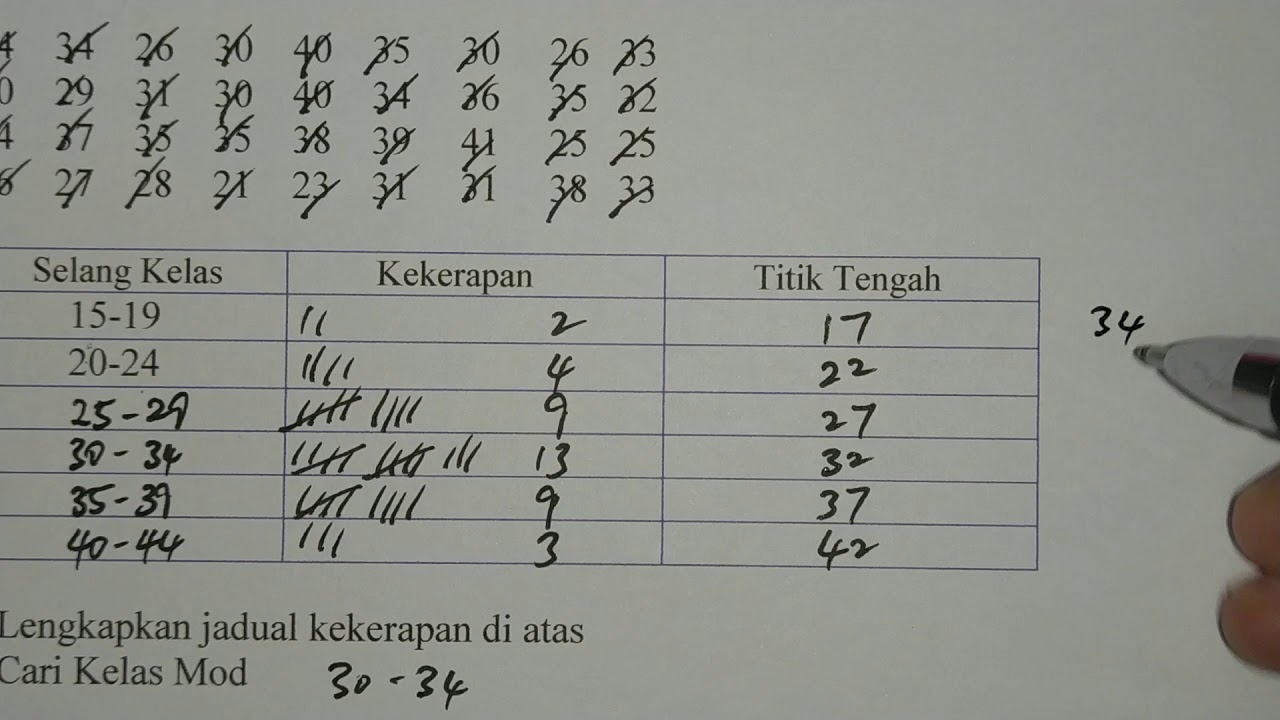 4 34 26 30 40 35 30 26 33
0 29 31 30 40 34 36 35 32
4 37 35 35 38 39 41 25 25
6 27 28 21 23 31 31 38 33
Selang Kelas Kekerapan Titik Tengah
15-19 2 17
34
20-24 4 22
25-29 9 27
30-34 13 32
35-39 9 37
40-44 3 42
Lengkapkan jadual kekerapan di atas
Cari Kelas Mod 30-34